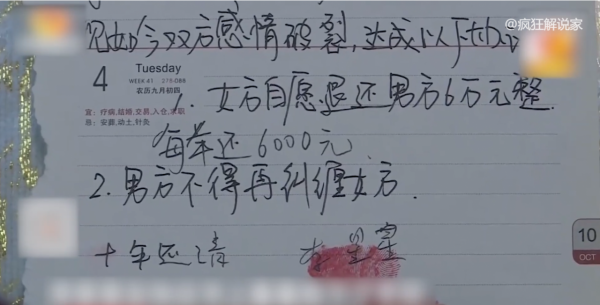 @疯狂解说家
如今双方感情破裂,达成以下
4
Tuesday
WEEK 41
农历九月初四
宜：疗病,结婚,交易,入仓,求职
忌：安葬,动土,针灸
1. 女方自愿退还男方6万元整.
每年还6000元.
2. 男方不得再纠缠女方.
十年还清
10
OCT